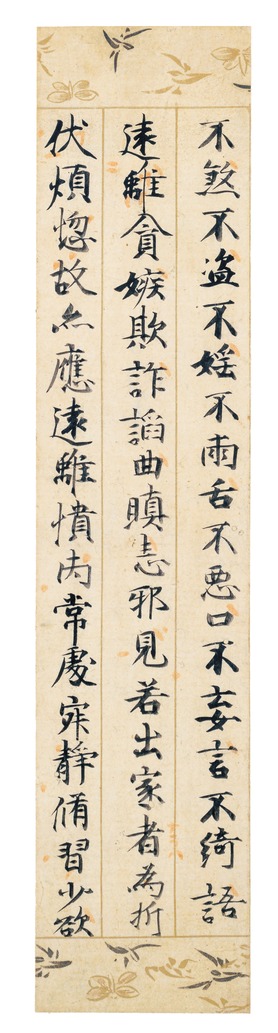 不煞不盗不婬不兩舌不悪口不妄言不綺語
遠離貪嫉欺詐諂曲瞋恚邪見若出家者為折
伏煩惱故亦應遠離憒閙常處寂靜脩習少欲